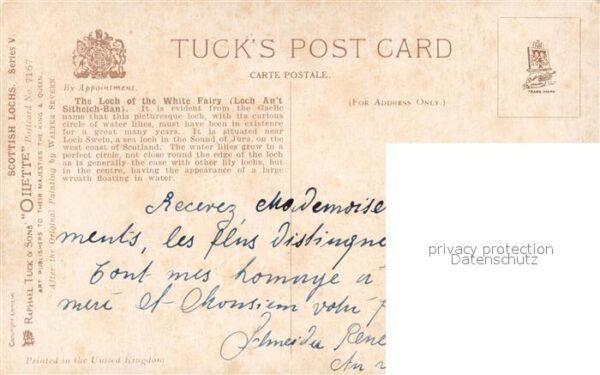 TUCK'S POST CARD
CARTE POSTALE.
By Appointment.
(FOR ADDRESS ONLY)
TRADE MARK
The Loch of the White Fairy (Loch An't
Sitheich-Ban). It is evident from the Gaelic
name that this picturesque loch, with its curious
circle of water lilies, must have been in existence
for a great many years. It is situated near
Loch Swein, a sea loch in the Sound of Jura, on the
west coast of Scotland. The water lilies grow in a
perfect circle, not close round the edge of the loch
as is generally the case with other lily lochs, but
in the centre, having the appearance of a large
wreath floating in water.
SCOTTISH LOCHS. Series V.
RAPHAEL TUCK & SONS' "OILETTE" Postcard No. 7167
ART PUBLISHERS TO THEIR MAJESTIES THE KING & QUEEN.
After the Original Painting by WALTER SEVERN.
Recevez Mademoise
ments, les plus distingue
Tout mes homage à
mere et Monsieur votre
Schneider Rene
Printed in the United Kingdom
privacy protection
Datenschutz